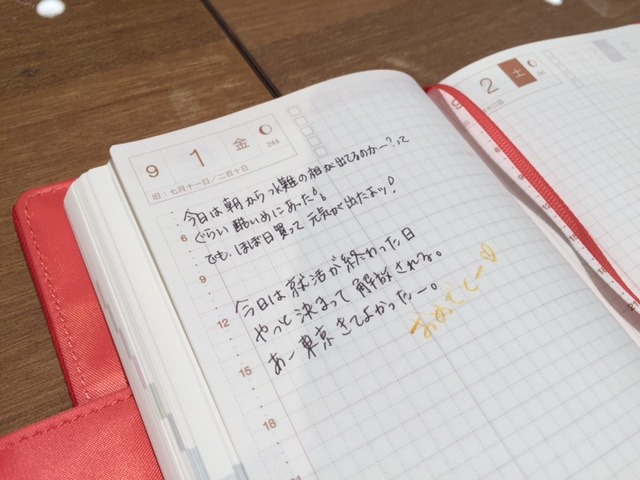 9 1 金 244
旧：七月十一日／二百十日
今日は朝から水難の相が出てるのかー？って
ぐらい酷いめにあった！
でも、ほぼ日買って元気が出たヨッ！
今日は就活が終わった日
やっと決まって解放される。
あー東京きてよかったー。
おめでとー♡
6
9
12
15
18
21
9 2 土
6
9
12
15
18
21